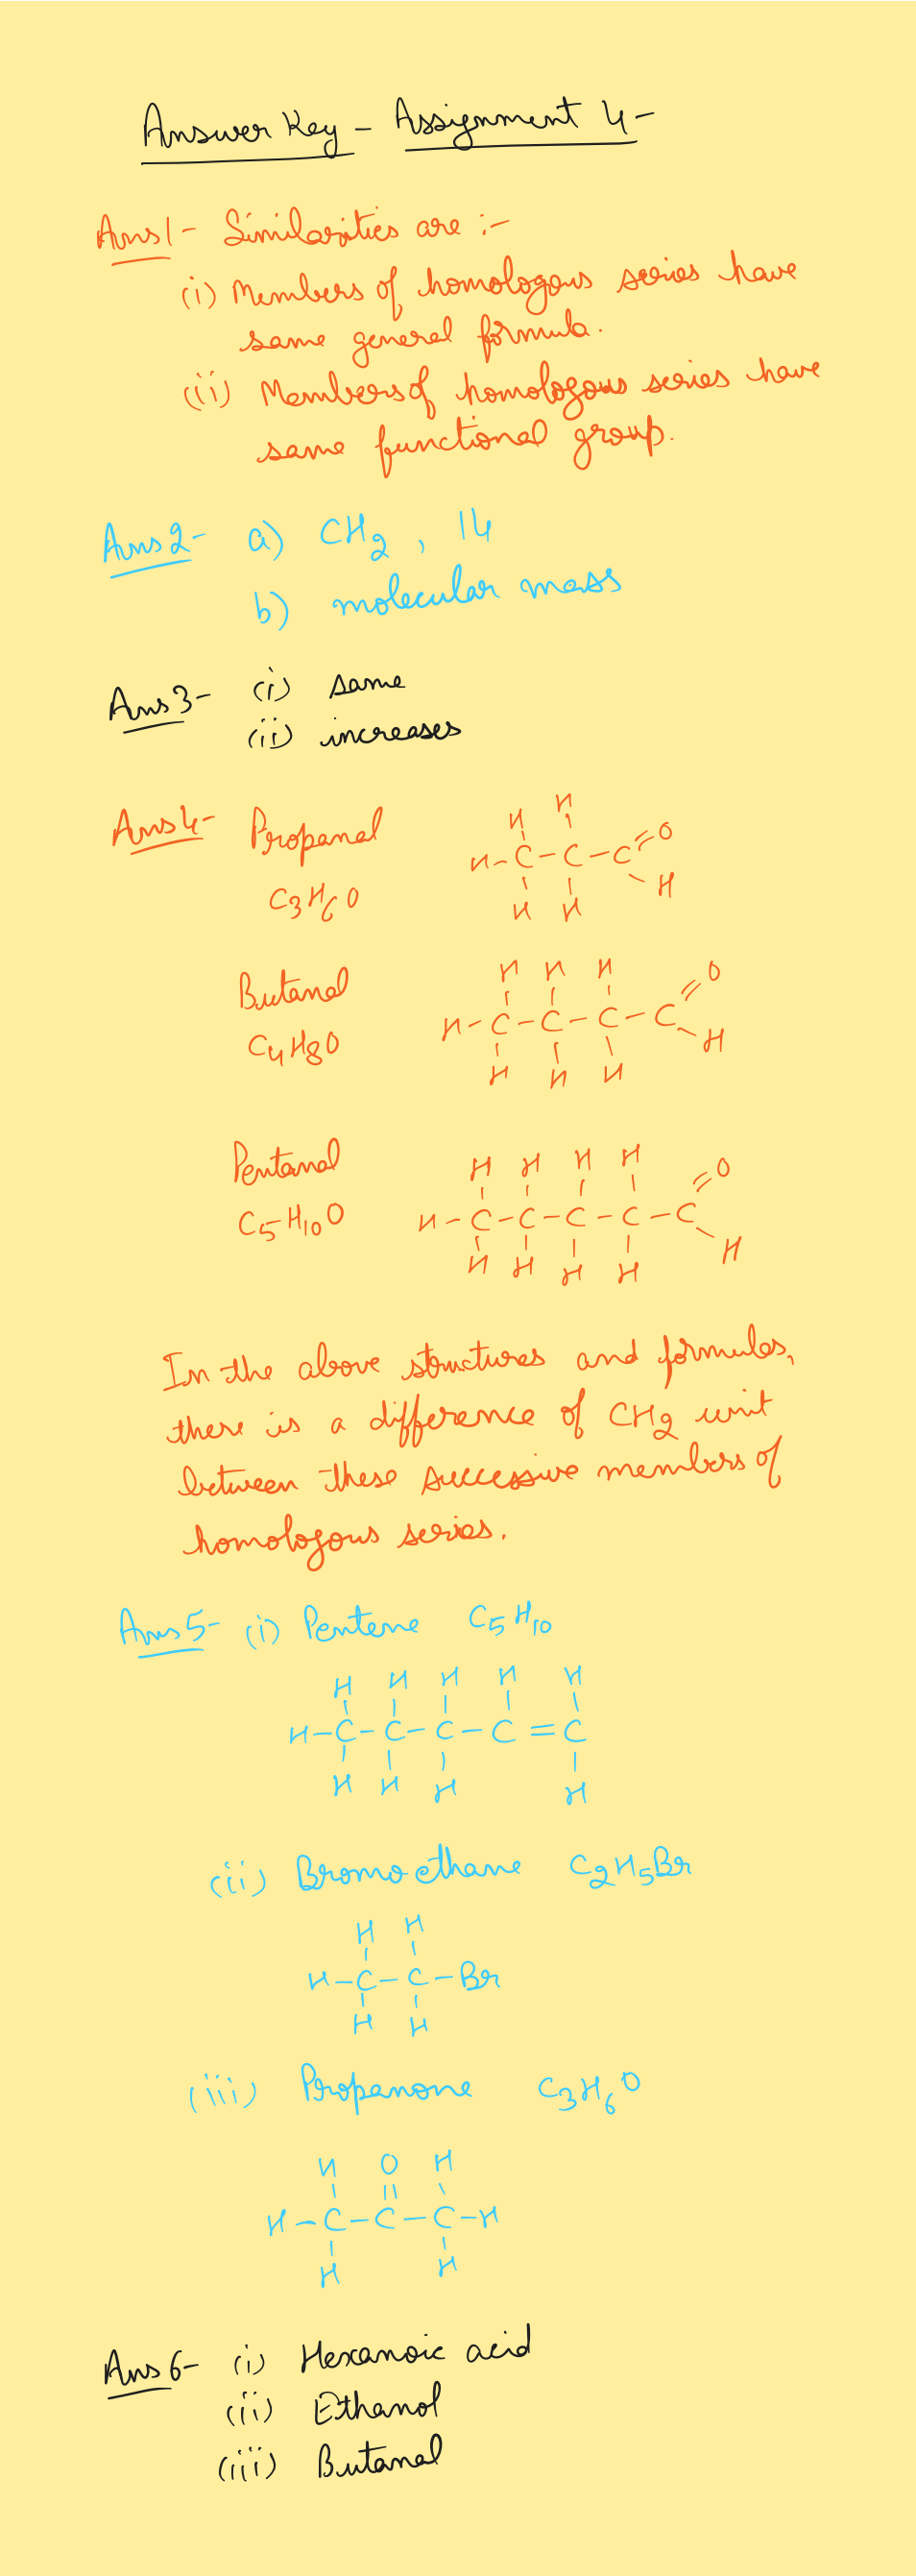 Answer Key - Assignment 4 -
Ans1- Similarities are :-
(i) Members of homologous series have
same general formula.
(ii) Members of homologous series have
same functional group.
Ans2- a) CH₂ , 14
b) molecular mass
Ans3- (i) same
(ii) increases
Ans4- Propanal
C₃H₆O
H H
H-C-C-C=O
H H H
Butanal
C₄H₈O
H H H O
H-C-C-C-C=
H H H H
Pentanal
C₅H₁₀O
H H H H O
H-C-C-C-C-C=
H H H H H
In the above structures and formulas,
there is a difference of CH₂ unit
between these successive members of
homologous series.
Ans5- (i) Pentene C₅H₁₀
H H H H H
H-C-C-C-C=C
H H H H
(ii) Bromoethane C₂H₅Br
H H
H-C-C-Br
H H
(iii) Propanone C₃H₆O
H O H
H-C-C-C-H
H H
Ans6- (i) Hexanoic acid
(ii) Ethanol
(iii) Butanal